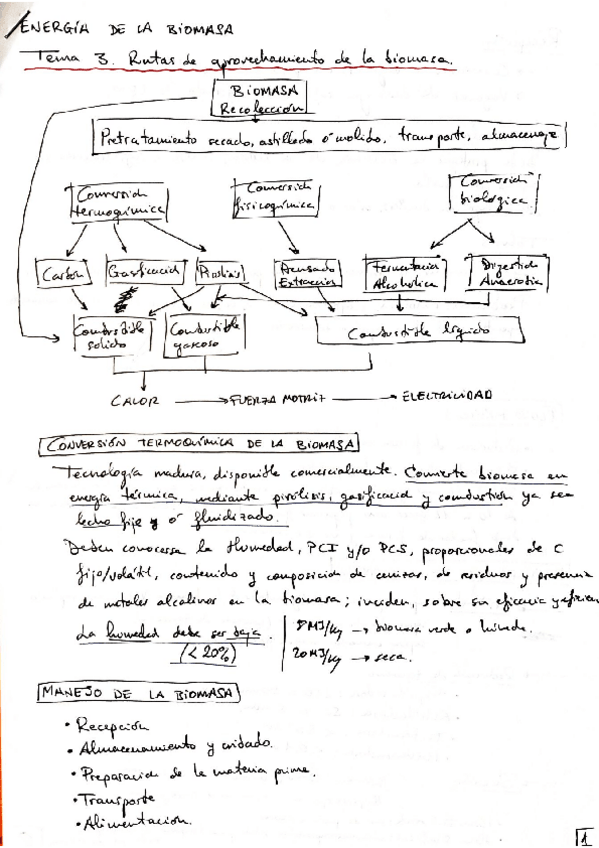 ENERGÍA DE LA BIOMASA
Tema 3. Rutas de aprovechamiento de la biomasa.
BIOMASA
Recolección
Pretratamiento secado, astillado o molido, transporte, almacenaje
Conversión termoquímica
Conversión fisicoquímica
Conversión biológica
Carbón
Gasificación
Pirólisis
Prensado Extracción
Fermentación Alcohólica
Digestión Anaerobia
Combustible solido
Combustible gaseoso
Combustible líquido
CALOR
FUERZA MOTRIZ
ELECTRICIDAD
CONVERSIÓN TERMOQUÍMICA DE LA BIOMASA
Tecnología madura, disponible comercialmente. Convierte biomasa en
energía térmica, mediante pirólisis, gasificación y combustión ya sea
lecho fijo y ó fluidizado.
Deben conocerse la Humedad, PCI y/o PCS, proporcionales de C
fijo/volátil, contenido y composición de cenizas, de residuos y presencia
de metales alcalinos en la biomasa; inciden, sobre su eficacia y eficien
La humedad debe ser baja
(<20%)
8 MJ/kg → biomasa verde o húmeda.
20 MJ/kg → seca.
MANEJO DE LA BIOMASA
• Recepción
• Almacenamiento y cuidado.
• Preparación de la materia prima.
• Transporte
• Alimentación.
1